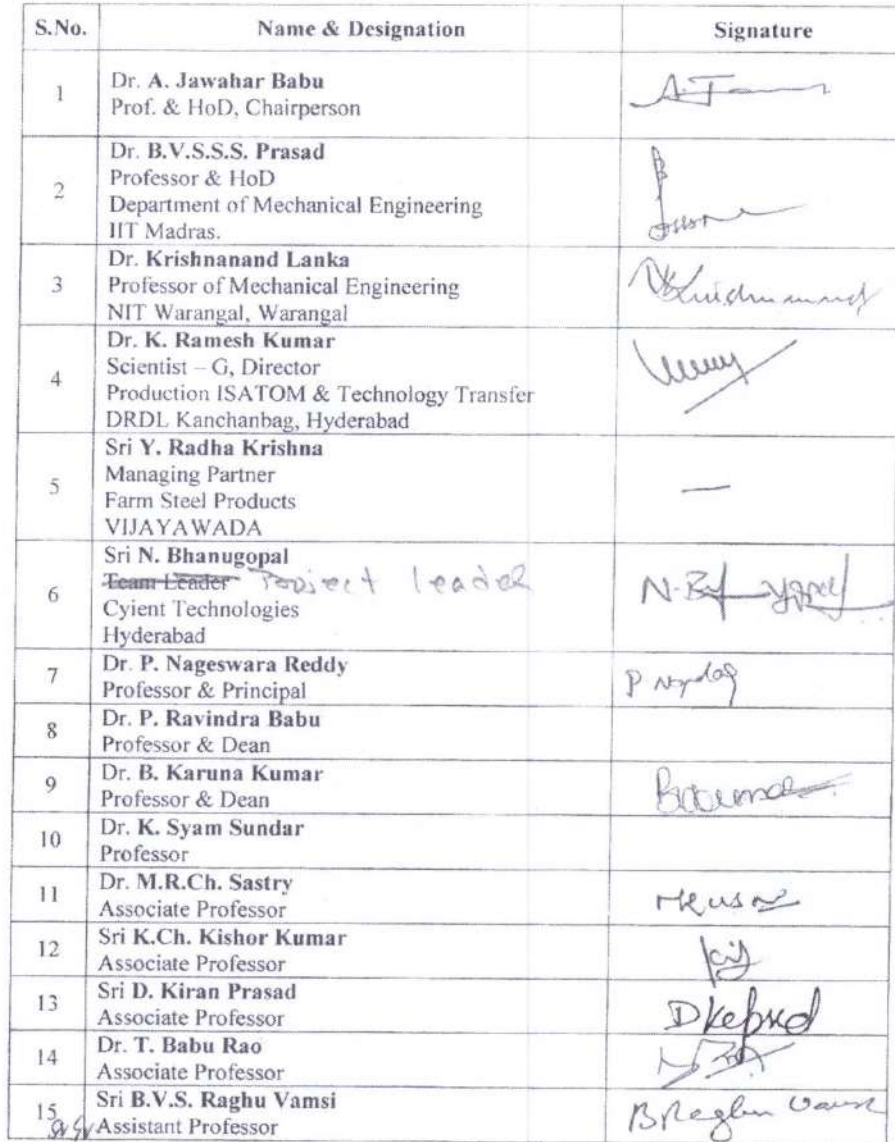 S.No. Name & Designation Signature
1 Dr. A. Jawahar Babu
Prof. & HoD, Chairperson
2 Dr. B.V.S.S.S. Prasad
Professor & HoD
Department of Mechanical Engineering
IIT Madras.
3 Dr. Krishnanand Lanka
Professor of Mechanical Engineering
NIT Warangal, Warangal
4 Dr. K. Ramesh Kumar
Scientist – G, Director
Production ISATOM & Technology Transfer
DRDL Kanchanbag, Hyderabad
5 Sri Y. Radha Krishna
Managing Partner
Farm Steel Products
VIJAYAWADA
—
6 Sri N. Bhanugopal
Team Leader Project leader
Cyient Technologies
Hyderabad
7 Dr. P. Nageswara Reddy
Professor & Principal
8 Dr. P. Ravindra Babu
Professor & Dean
9 Dr. B. Karuna Kumar
Professor & Dean
10 Dr. K. Syam Sundar
Professor
11 Dr. M.R.Ch. Sastry
Associate Professor
12 Sri K.Ch. Kishor Kumar
Associate Professor
13 Sri D. Kiran Prasad
Associate Professor
14 Dr. T. Babu Rao
Associate Professor
15 Sri B.V.S. Raghu Vamsi
Assistant Professor